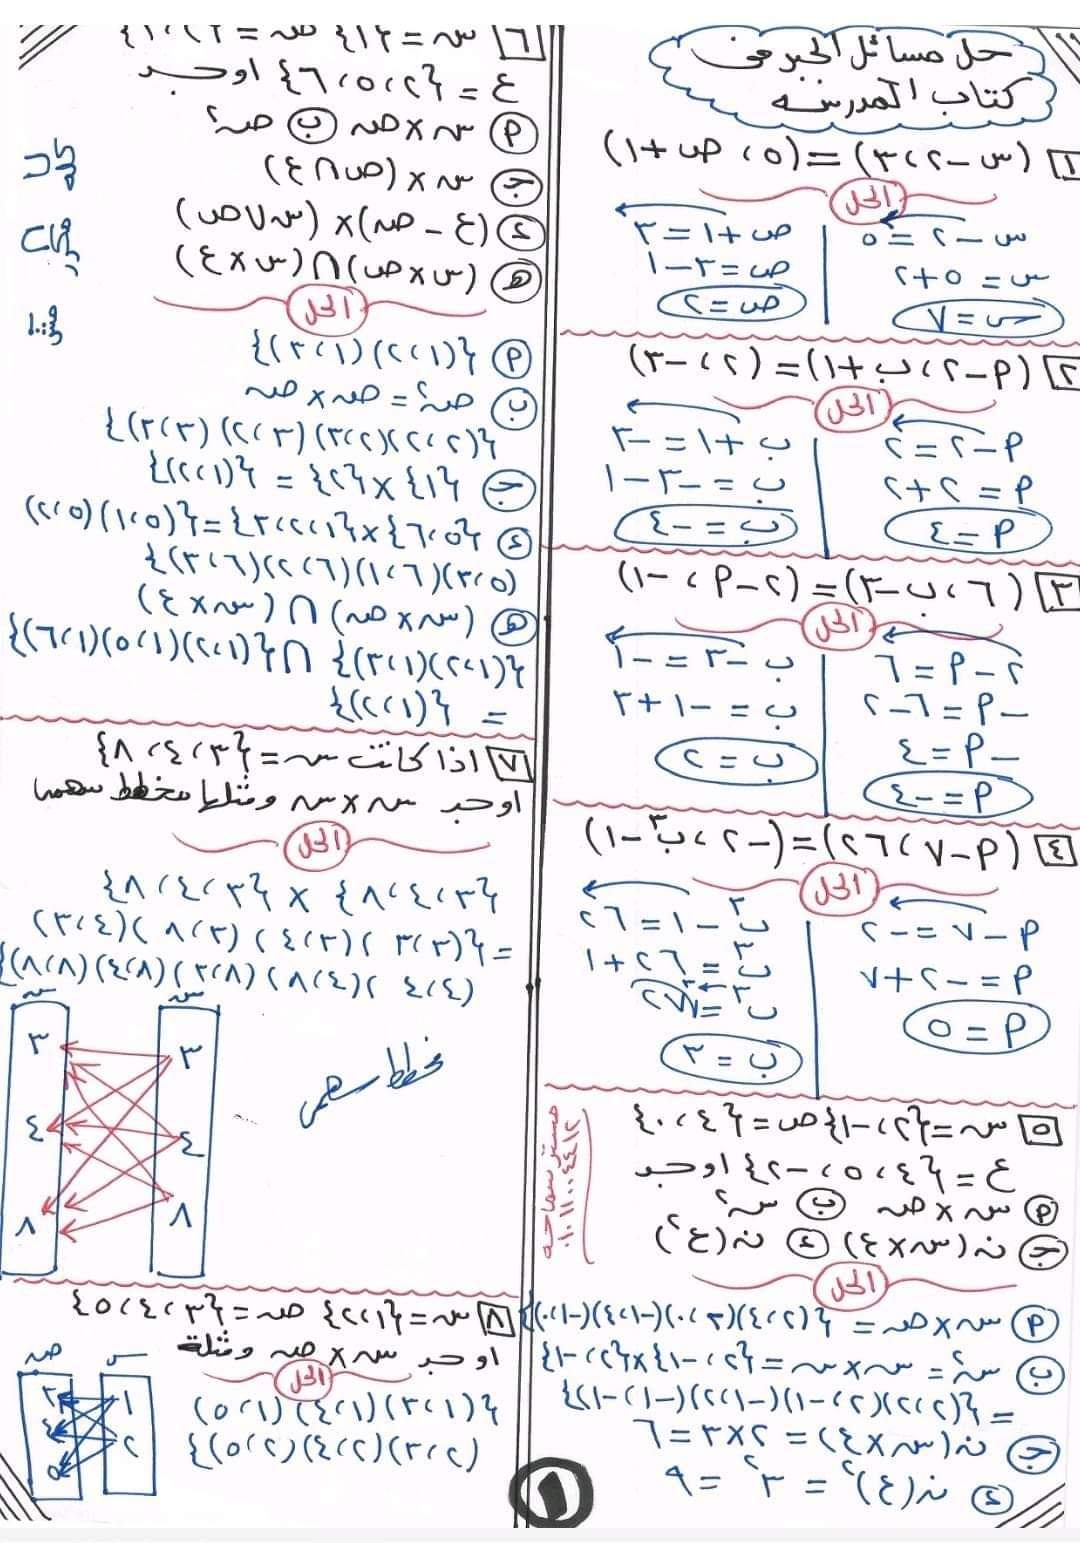 حل مسائل الجبر من
كتاب المدرسة
١ (س − ٢ ، ٣) = (٥ ، ص + ١)
الحل
س − ٢ = ٥
س = ٥ + ٢
س = ٧
ص + ١ = ٣
ص = ٣ − ١
ص = ٢
٢ (٢ − P ، ب + ١) = (٢ ، −٣)
الحل
P − ٢ = ٢
P = ٢ + ٢
P = ٤
ب + ١ = −٣
ب = −٣ − ١
ب = −٤
٣ (٦ ، ب − ٣) = (٢ − P ، −١)
الحل
٢ − P = ٦
−P = ٦ − ٢
−P = ٤
P = −٤
ب − ٣ = −١
ب = −١ + ٣
ب = ٢
٤ (P − ٧ ، ٢٦) = (−٢ ، ب٣ − ١)
الحل
P − ٧ = −٢
P = −٢ + ٧
P = ٥
ب٣ − ١ = ٢٦
ب٣ = ٢٦ + ١
ب٣ = ٢٧
ب = ٣
٥ س = {٢ ، −١} ص = {٤ ، ٠}
ع = {٤ ، ٥ ، −٢} اوجد
P س × ص ب س٢
ج ن(س × ع) د ن(ع٢)
الحل
P س × ص = {(٢،٤)(٢،٠)(−١،٤)(−١،٠)}
ب س٢ = س × س = {٢ ، −١} × {٢ ، −١}
= {(٢،٢)(٢،−١)(−١،٢)(−١،−١)}
ج ن(س × ع) = ٢ × ٣ = ٦
د ن(ع)٢ = ٣٢ = ٩
مستر سماحه
٠١٠١١٠٠٤٤١٢
٦ س = {١} ص = {٢ ، ٣}
ع = {٢ ، ٥ ، ٦} اوجد
P س × ص ب ص٢
ج س × (ص ∩ ع)
د (ع − ص) × (س ∪ ص)
هـ (س × ص) ∩ (س × ع)
الحل
P {(١،٢)(١،٣)}
ب ص٢ = ص × ص
{(٢،٢)(٢،٣)(٣،٢)(٣،٣)}
ج {١} × {٢} = {(١،٢)}
د {٥،٦} × {١،٢،٣} = {(٥،١)(٥،٢)
(٥،٣)(٦،١)(٦،٢)(٦،٣)}
هـ (س × ص) ∩ (س × ع)
{(١،٢)(١،٣)} ∩ {(١،٢)(١،٥)(١،٦)}
= {(١،٢)}
٧ اذا كانت س = {٣ ، ٤ ، ٨}
اوجد س × س ومثلها مخطط سهمى
الحل
{٣ ، ٤ ، ٨} × {٣ ، ٤ ، ٨}
= {(٣،٣)(٣،٤)(٣،٨)(٤،٣)
(٤،٤)(٤،٨)(٨،٣)(٨،٤)(٨،٨)}
س س
٣ ٣
٤ ٤
٨ ٨
مخطط سهمى
٨ س = {١ ، ٢} ص = {٣ ، ٤ ، ٥}
اوجد س × ص ومثلة
الحل
{(١،٣)(١،٤)(١،٥)
(٢،٣)(٢،٤)(٢،٥)}
س ص
١ ٣
٢ ٤
٥
١